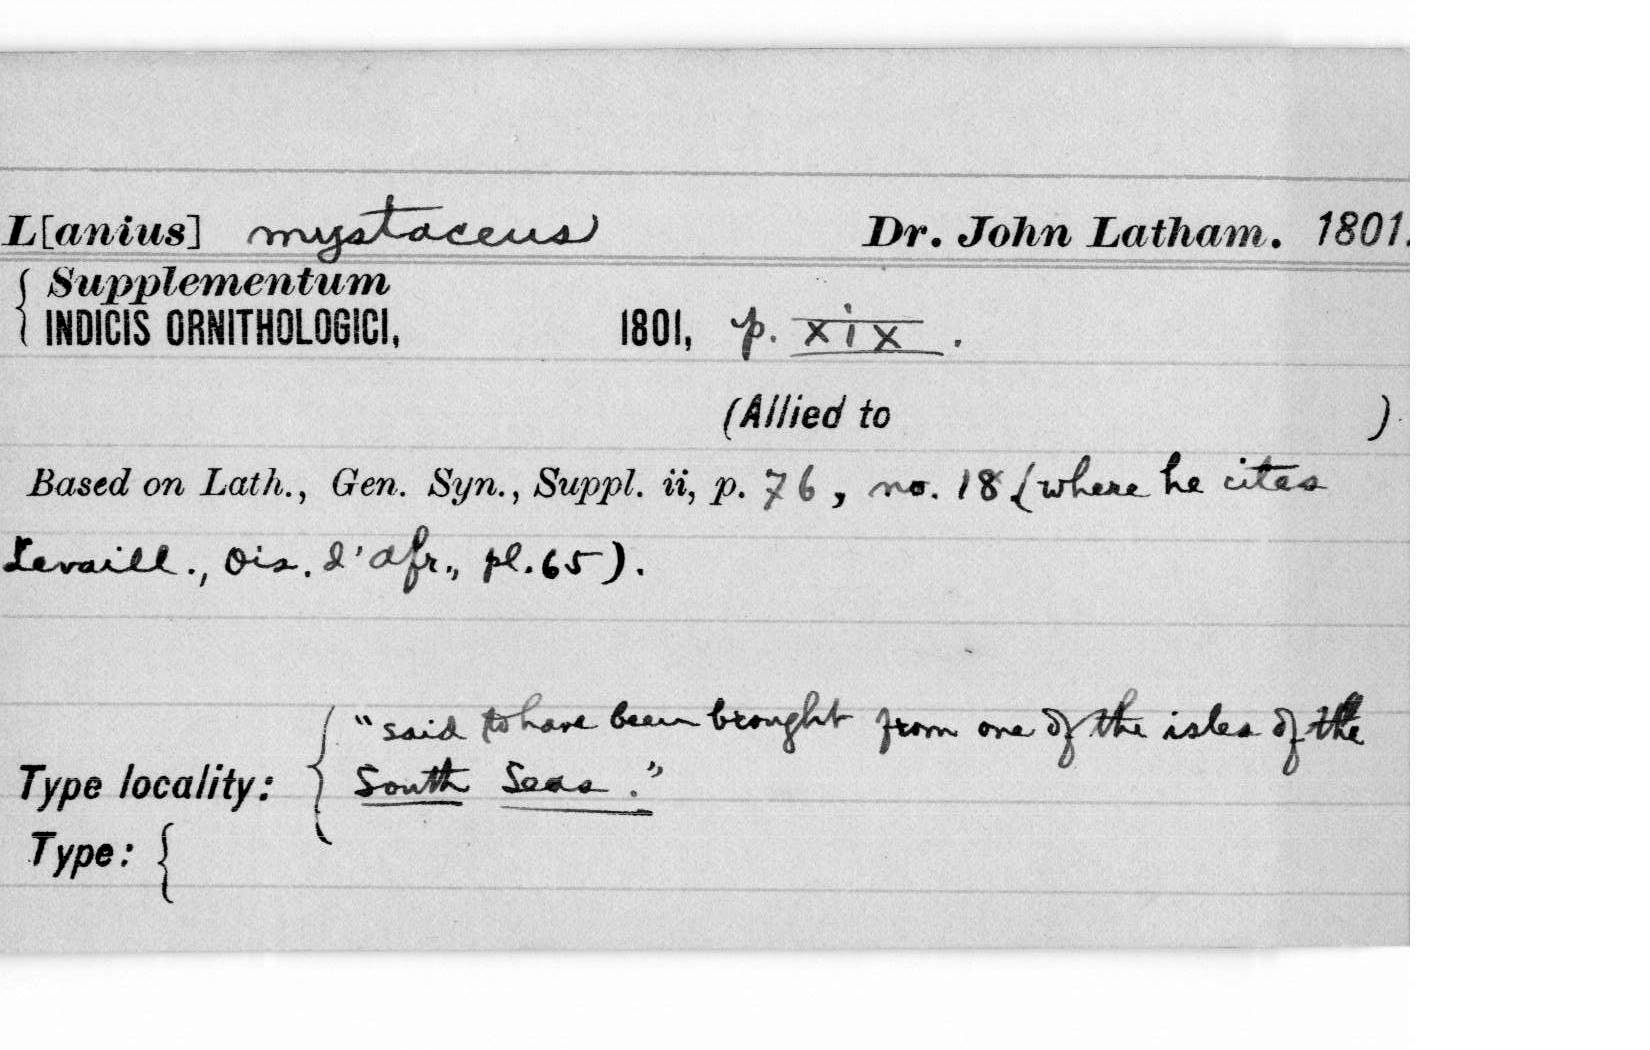 L[anius] mystaceus Dr. John Latham. 1801.
Supplementum
INDICIS ORNITHOLOGICI, 1801, p. xix.
(Allied to )
Based on Lath., Gen. Syn., Suppl. ii, p. 76, no. 18 (where he cites
Levaill., Ois. d'Afr., pl. 65).
"said to have been brought from one of the isles of the
Type locality: South Seas."
Type: